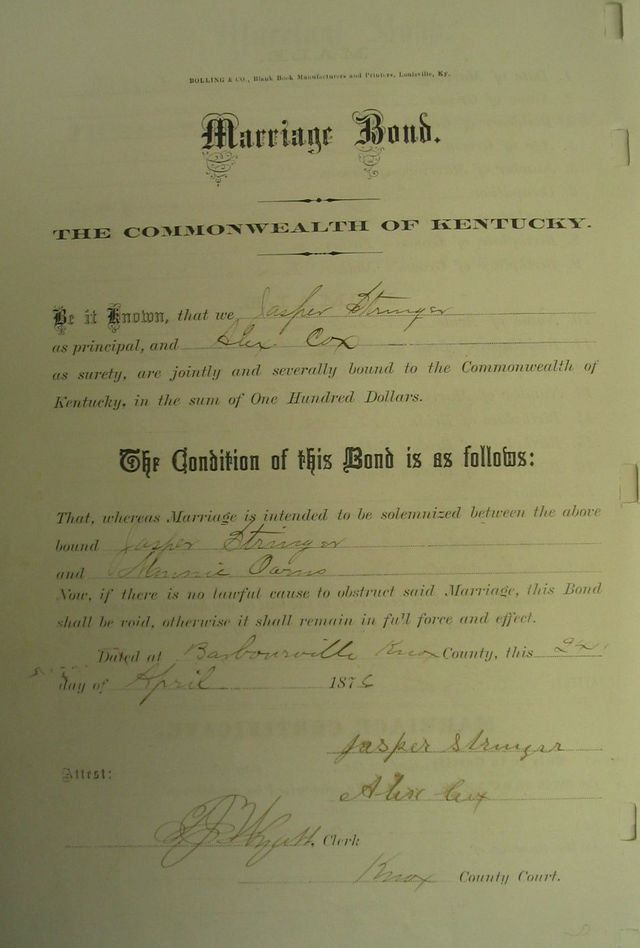 BOLLING & CO., Blank Book Manufacturers and Printers, Louisville, Ky.
Marriage Bond.
THE COMMONWEALTH OF KENTUCKY.
Be it Known, that we Jasper Stringer
as principal, and Alex Cox
as surety, are jointly and severally bound to the Commonwealth of
Kentucky, in the sum of One Hundred Dollars.
The Condition of this Bond is as follows:
That, whereas Marriage is intended to be solemnized between the above
bound Jasper Stringer
and Minnie Owens
Now, if there is no lawful cause to obstruct said Marriage, this Bond
shall be void, otherwise it shall remain in full force and effect.
Dated at Barbourville Knox County, this 24
day of April 1876
Jasper Stringer
Attest:
Alex Cox
Wyatt, Clerk
Knox County Court.